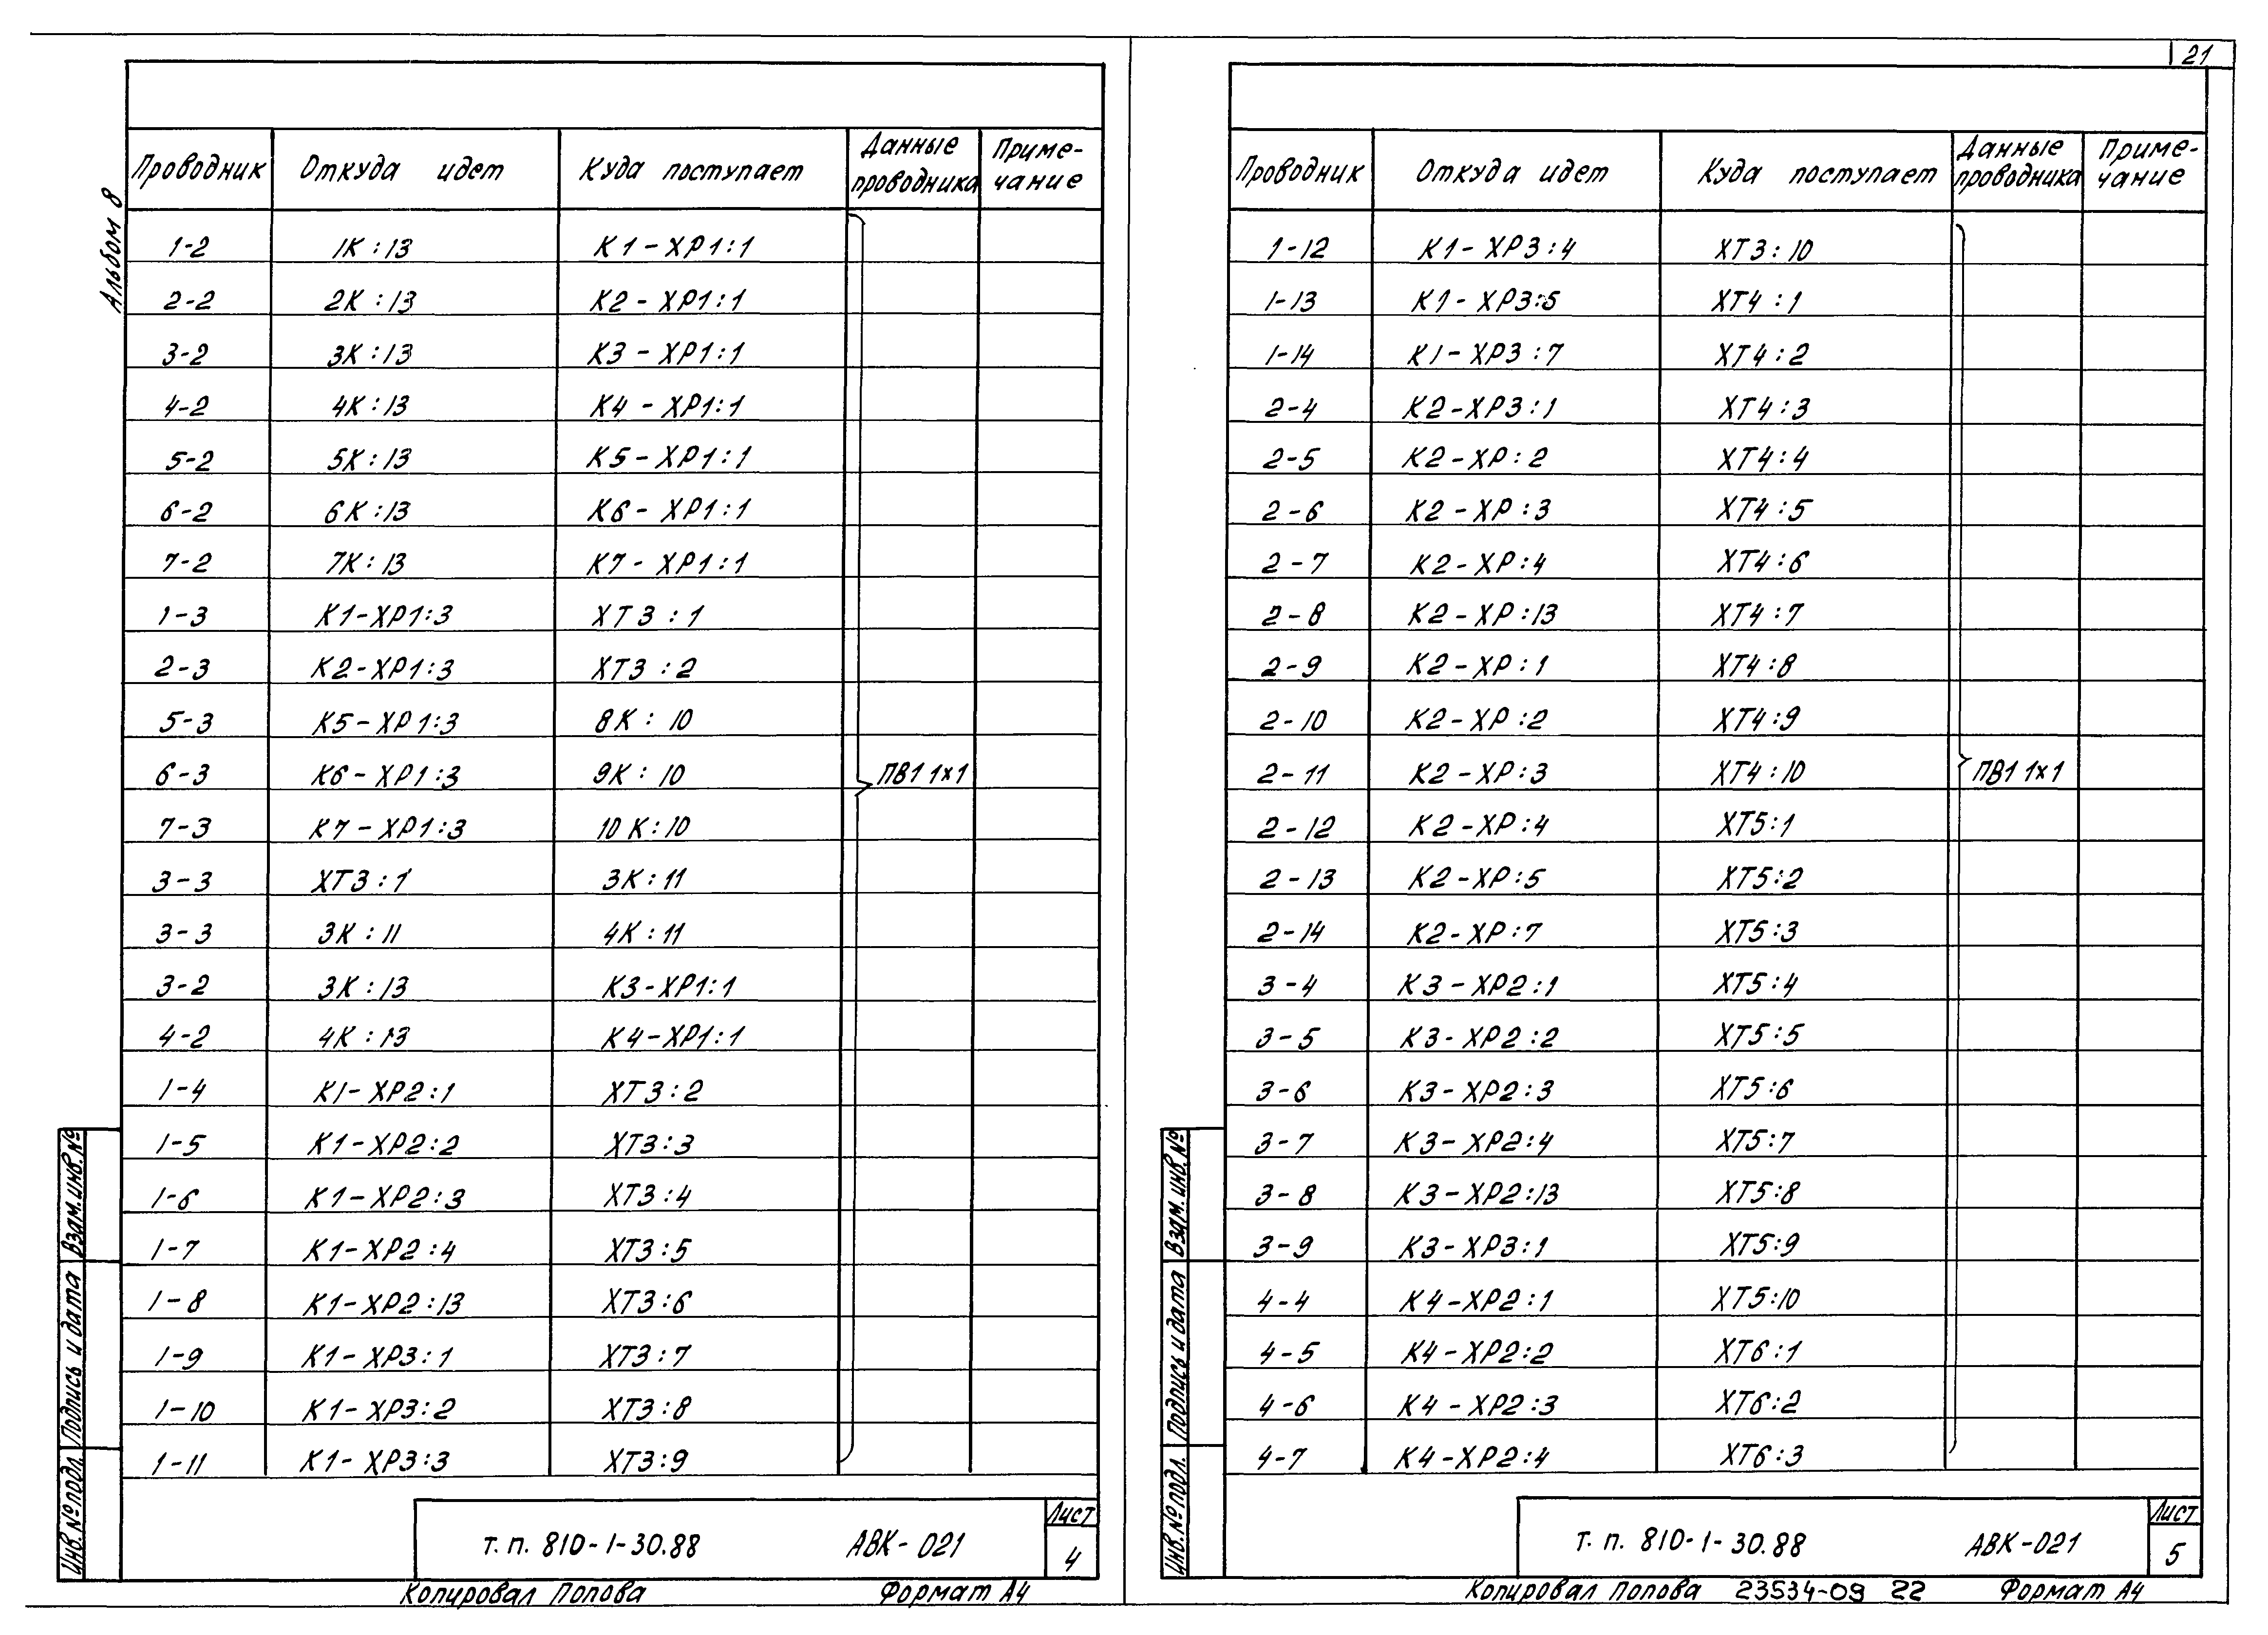 21
Альбом 8
Проводник Откуда идет Куда поступает Данные проводника Приме-чание
1-2 1К:13 К1-ХР1:1
2-2 2К:13 К2-ХР1:1
3-2 3К:13 К3-ХР1:1
4-2 4К:13 К4-ХР1:1
5-2 5К:13 К5-ХР1:1
6-2 6К:13 К6-ХР1:1
7-2 7К:13 К7-ХР1:1
1-3 К1-ХР1:3 ХТ3:1
2-3 К2-ХР1:3 ХТ3:2
5-3 К5-ХР1:3 8К:10
6-3 К6-ХР1:3 9К:10 ПВ1 1х1
7-3 К7-ХР1:3 10К:10
3-3 ХТ3:1 3К:11
3-3 3К:11 4К:11
3-2 3К:13 К3-ХР1:1
4-2 4К:13 К4-ХР1:1
1-4 К1-ХР2:1 ХТ3:2
1-5 К1-ХР2:2 ХТ3:3
1-6 К1-ХР2:3 ХТ3:4
1-7 К1-ХР2:4 ХТ3:5
1-8 К1-ХР2:13 ХТ3:6
1-9 К1-ХР3:1 ХТ3:7
1-10 К1-ХР3:2 ХТ3:8
1-11 К1-ХР3:3 ХТ3:9
Инв.№ подл. Подпись и дата Взам.инв.№
т.п. 810-1-30.88 АВК-021 Лист 4
Копировал Попова Формат А4
Проводник Откуда идет Куда поступает Данные проводника Приме-чание
1-12 К1-ХР3:4 ХТ3:10
1-13 К1-ХР3:5 ХТ4:1
1-14 К1-ХР3:7 ХТ4:2
2-4 К2-ХР3:1 ХТ4:3
2-5 К2-ХР:2 ХТ4:4
2-6 К2-ХР:3 ХТ4:5
2-7 К2-ХР:4 ХТ4:6
2-8 К2-ХР:13 ХТ4:7
2-9 К2-ХР:1 ХТ4:8
2-10 К2-ХР:2 ХТ4:9
2-11 К2-ХР:3 ХТ4:10 ПВ1 1х1
2-12 К2-ХР:4 ХТ5:1
2-13 К2-ХР:5 ХТ5:2
2-14 К2-ХР:7 ХТ5:3
3-4 К3-ХР2:1 ХТ5:4
3-5 К3-ХР2:2 ХТ5:5
3-6 К3-ХР2:3 ХТ5:6
3-7 К3-ХР2:4 ХТ5:7
3-8 К3-ХР2:13 ХТ5:8
3-9 К3-ХР3:1 ХТ5:9
4-4 К4-ХР2:1 ХТ5:10
4-5 К4-ХР2:2 ХТ6:1
4-6 К4-ХР2:3 ХТ6:2
4-7 К4-ХР2:4 ХТ6:3
Инв.№ подл. Подпись и дата Взам.инв.№
т.п. 810-1-30.88 АВК-021 Лист 5
Копировал Попова 23534-09 22 Формат А4